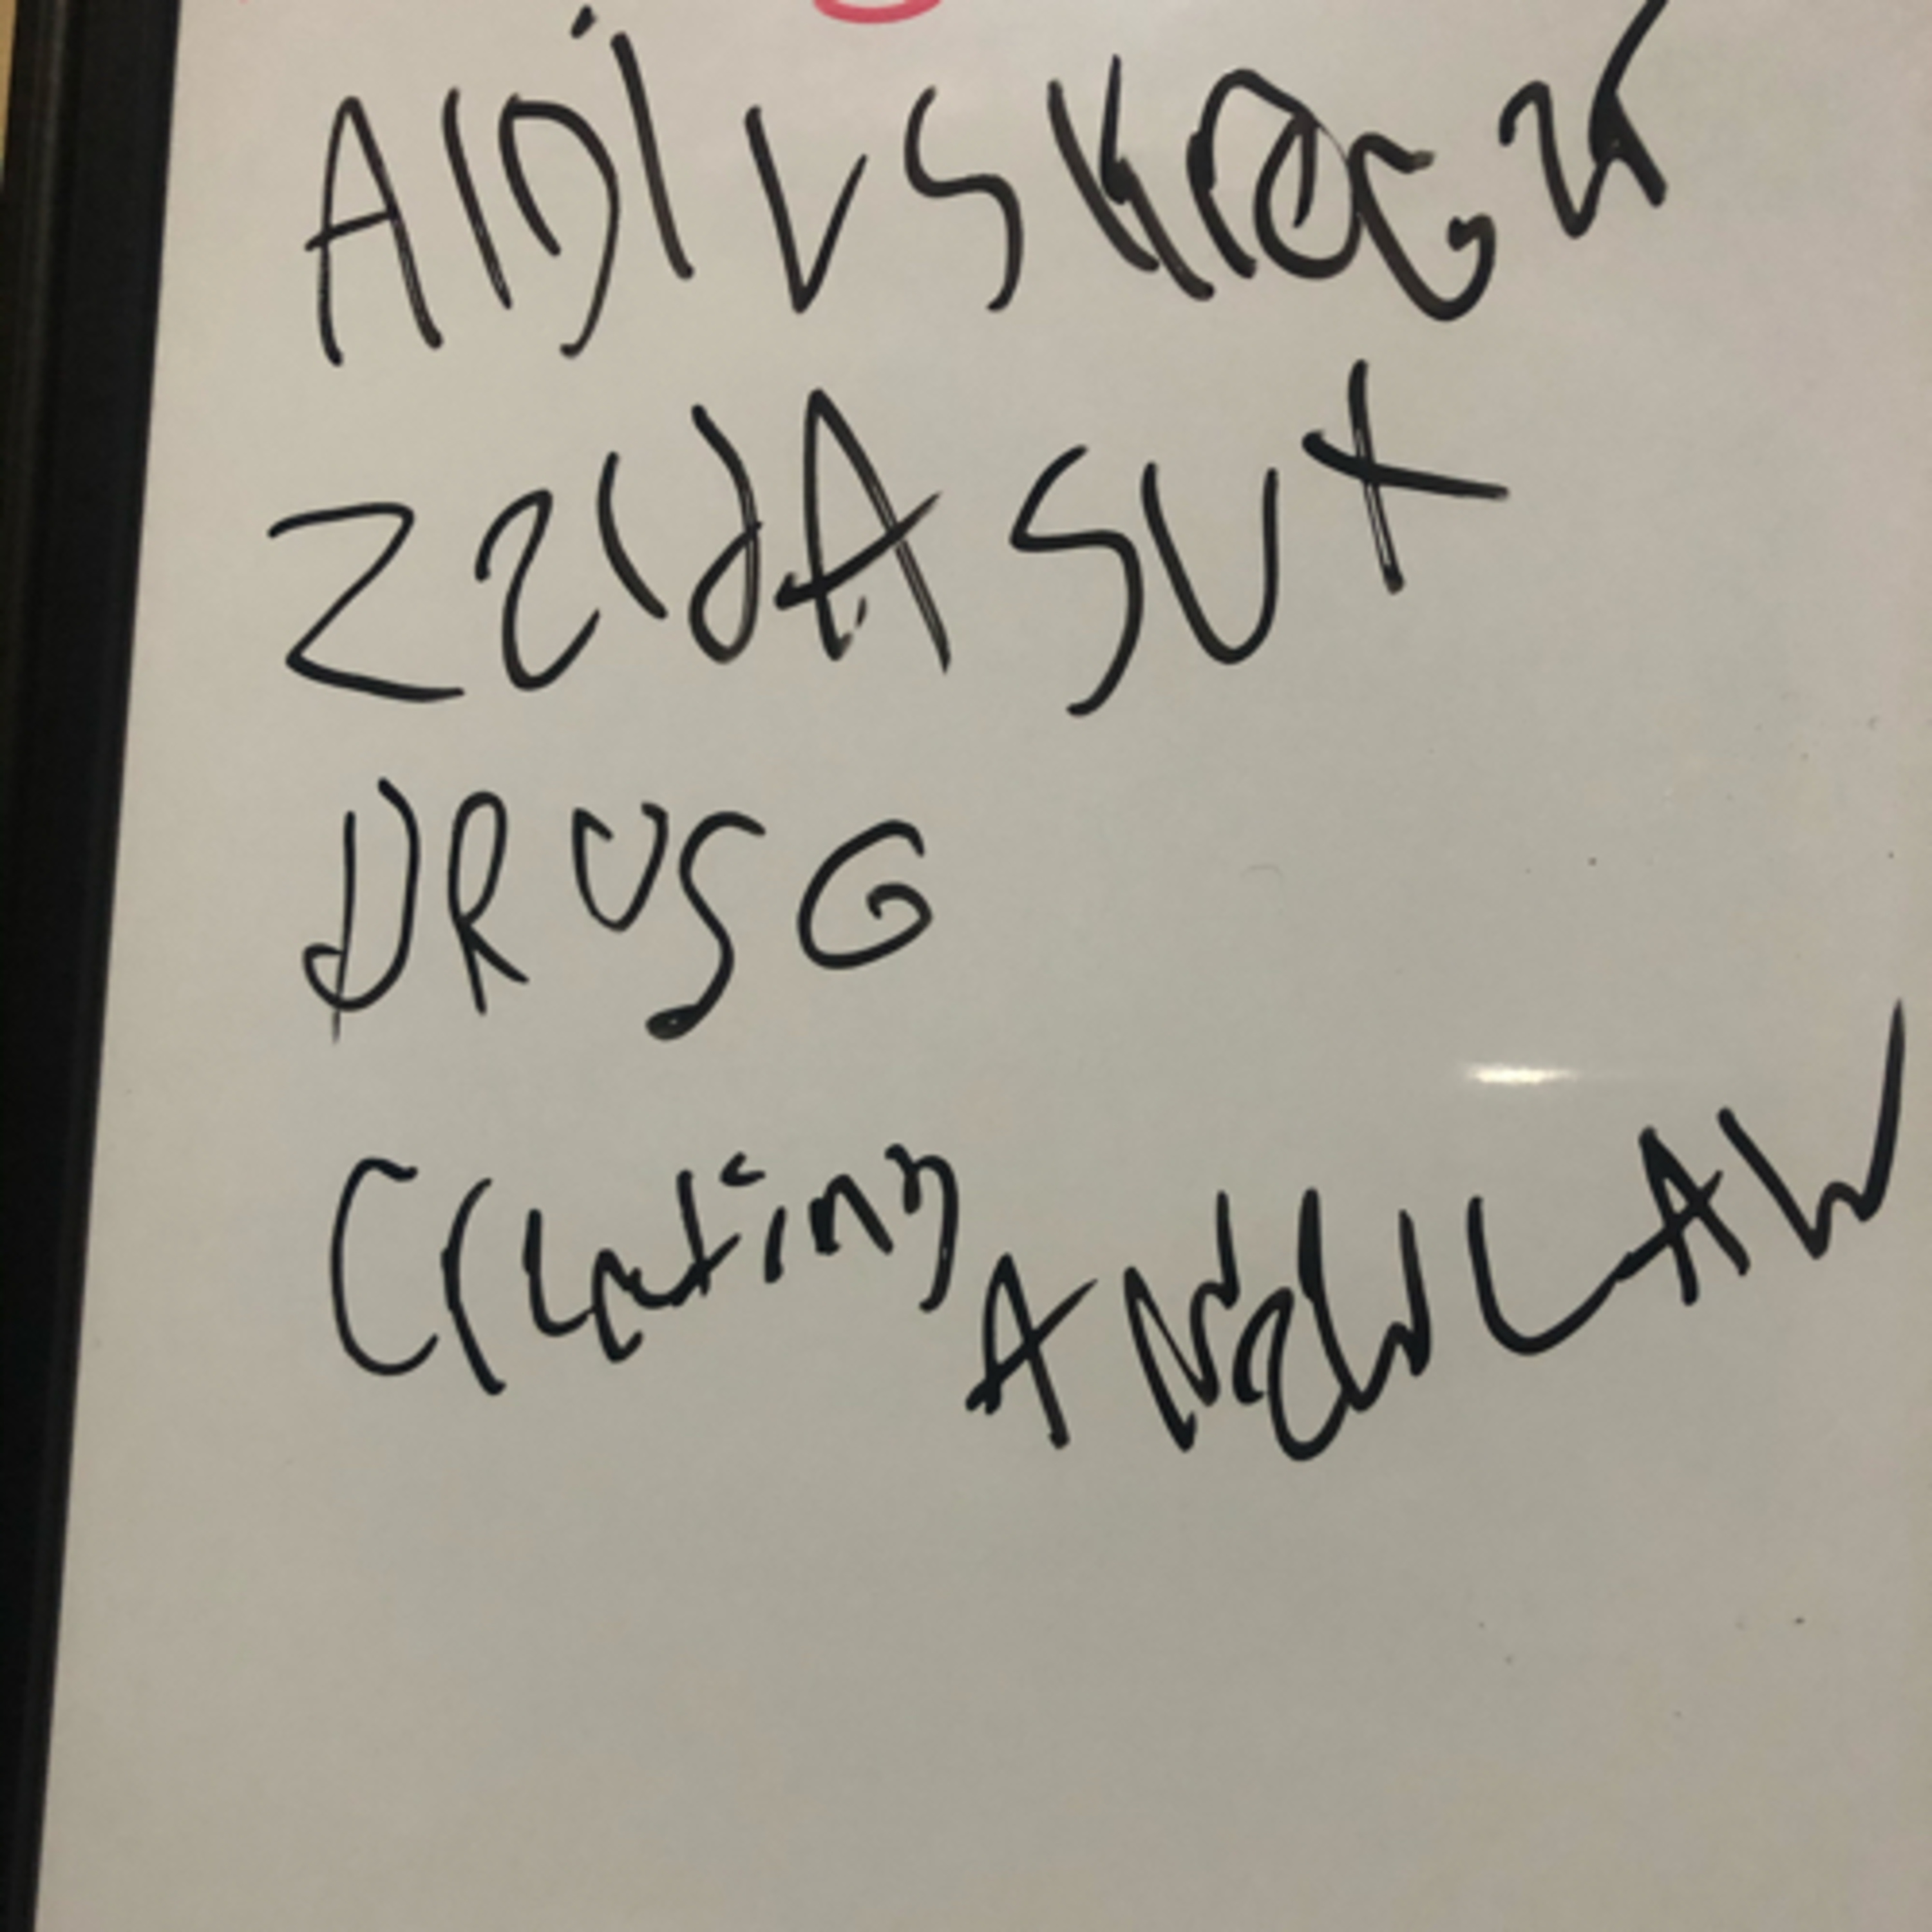 ALDI VS KROGER
ZELDA SUX
DRUSG
Creating A NEW LAW